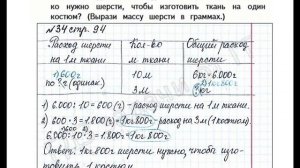 ко нужно шерсти, чтобы изготовить ткань на один
костюм? (Вырази массу шерсти в граммах.)
№34 стр. 94
Расход шерсти на 1м ткани
Кол-во м ткани
Общий расход шерсти
1) 600г
по ? г (одинак)
10м
3м
6кг = 6.000г
? 1кг800г
1) 6.000:10=600(г) - расход шерсти на 1м ткани.
2) 600·3=1.800(г)=1кг800г - расход на 3м (1 костюм).
6.000:10·3=1.800(г)=1кг800г
Ответ: 1кг800г шерсти нужно, чтобы изго-
товить 1 костюм.